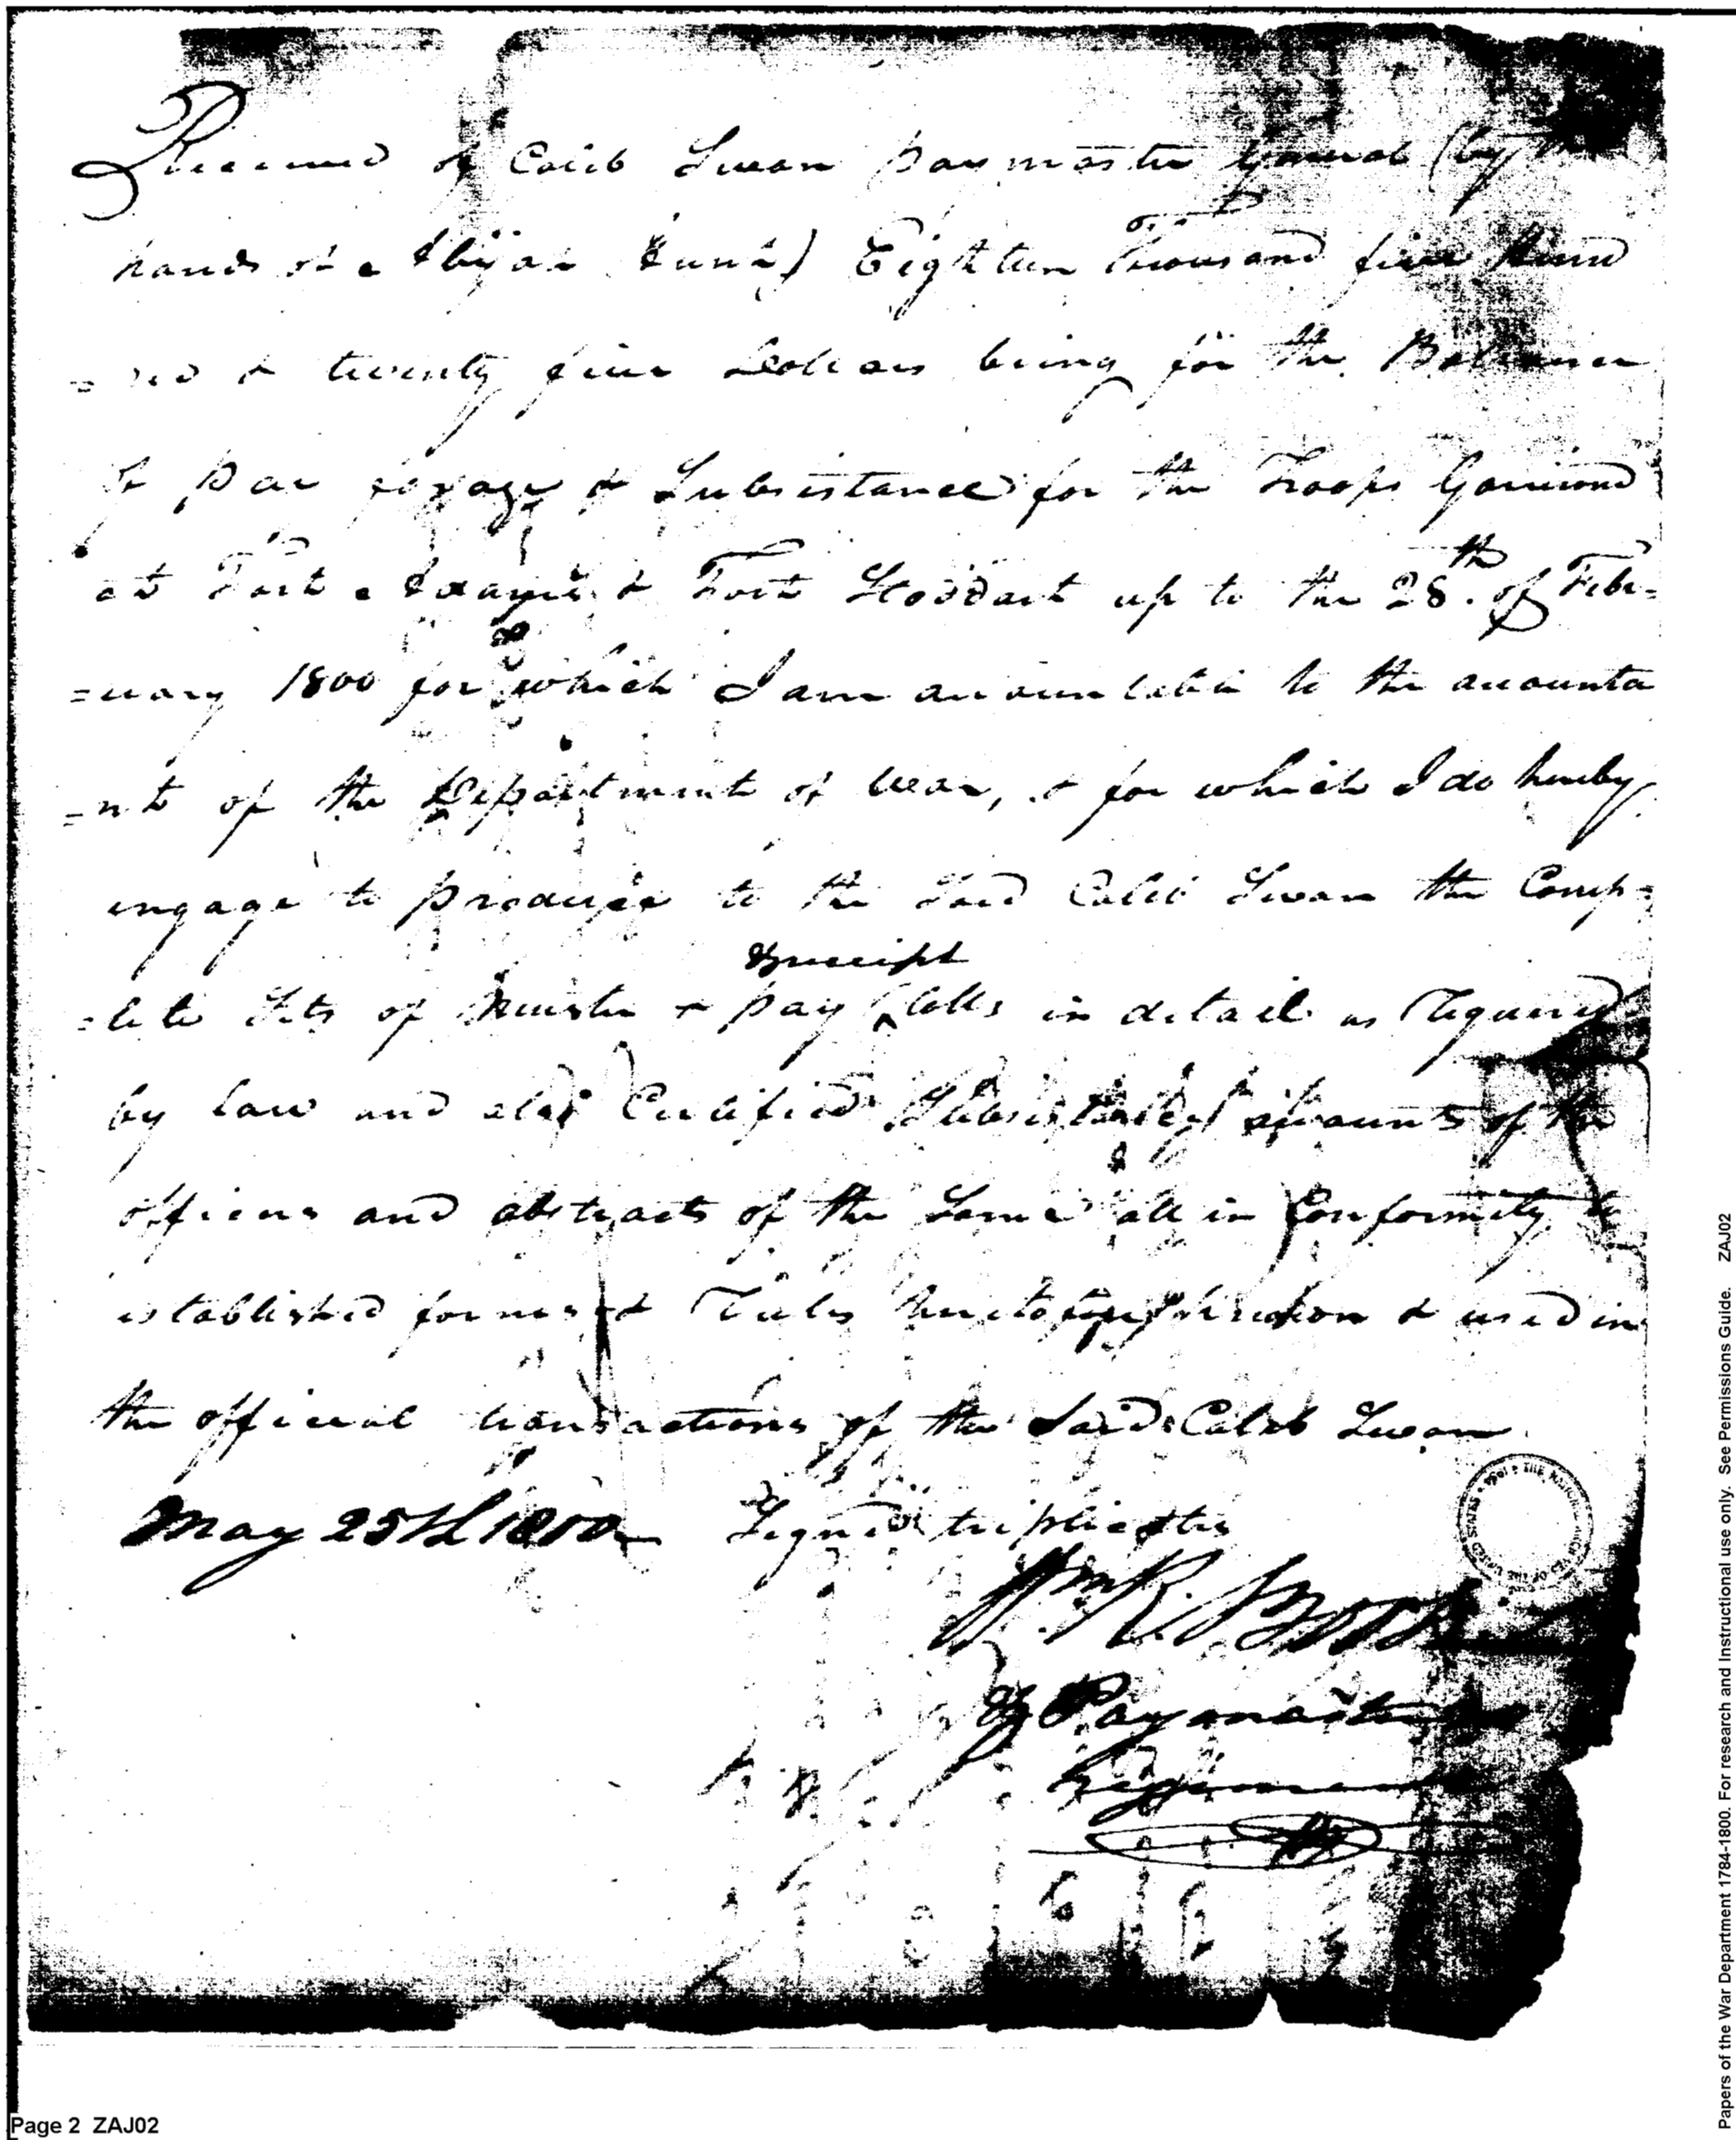 Received of Caleb Swan paymaster General (by the
hands of Abijah Hunt) Eighteen Thousand five Hund
=red & twenty five Dollars being for the Balance
of pay forage & Subsistance for the Troops Garrisond
at Fort Adams & Fort Stoddart up to the 28th. of Febr=
=uary 1800 for which I am accountable to the accounta
=nt of the Department of War, & for which I do hereby
engage to produce to the Said Caleb Swan the Comp=
receipt
=lete Sets of Muster & pay Rolls in detail as Required
by law and also Certified Subsistance accounts of the
officers and abstracts of the Same all in Conformity to
established forms & Rules & used in
the official transactions of the Said Caleb Swan
May 25th 1800 Signed triplicates
Wm R. Boote
Paymaster
Regiment
Page 2 ZAJ02
Papers of the War Department 1784-1800. For research and instructional use only. See Permissions Guide. ZAJ02